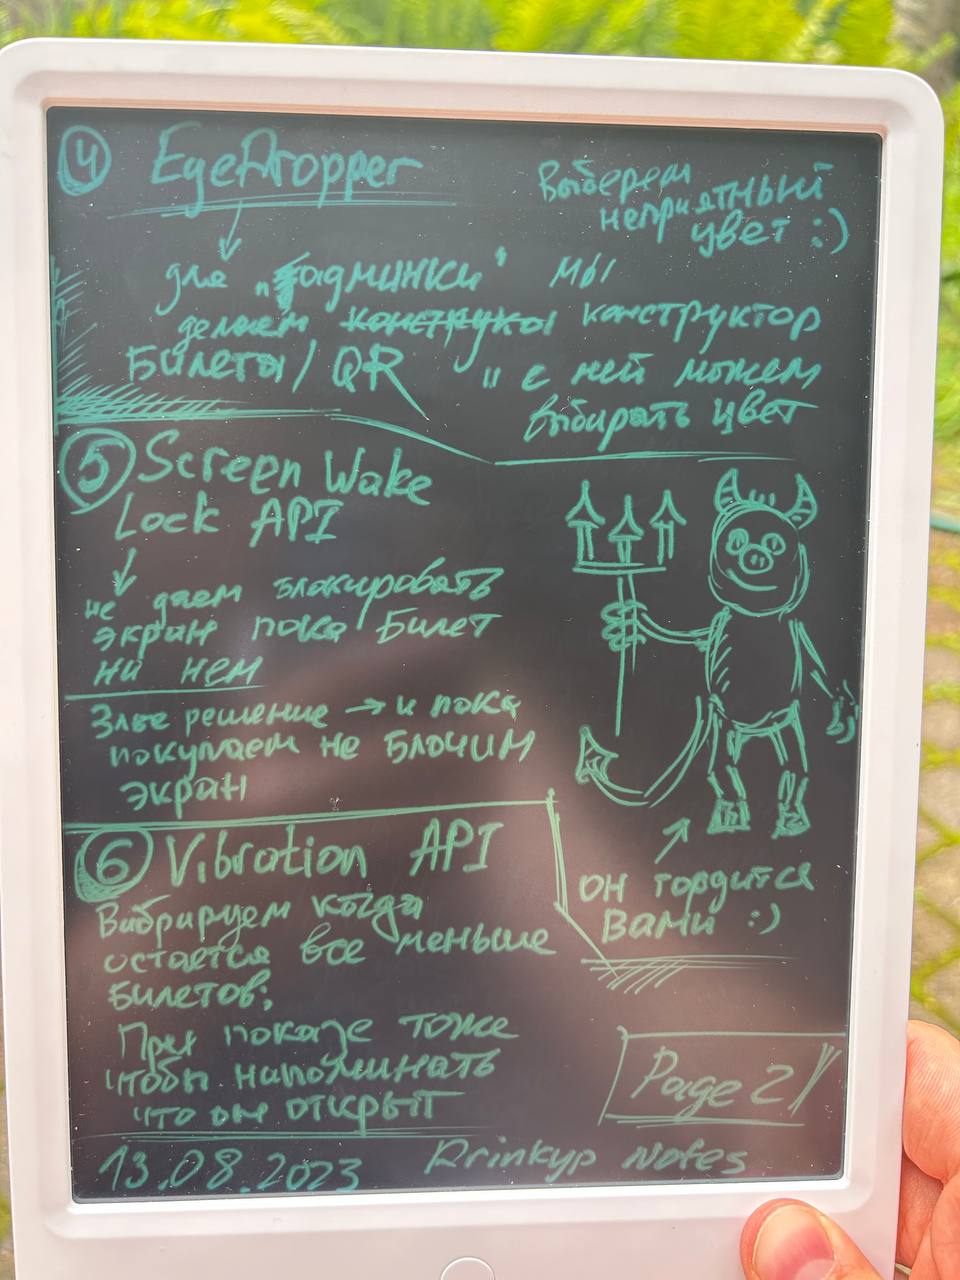 4 EyeDropper
Выберем
неприятный
цвет :)
для „админки" мы
делаем конструктор
Билеты/QR " с ней можем
выбирать цвет
5 Screen Wake
Lock API
не даем блокировать
экран пока билет
ни нем
Злое решение → и пока
покупаем не блочим
экран
он гордится
Вами :)
6 Vibration API
Вибрируем когда
остается все меньше
билетов;
При показе тоже
чтобы напоминать
что он открыт
Page 2
13.08.2023 Drinkup Notes